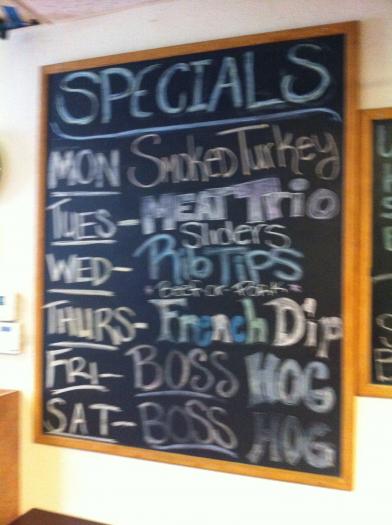 SPECIALS
MON Smoked Turkey
TUES- MEAT Trio
Sliders
WED- Rib TIPS
*BEEF-or-PORK*
THURS- French Dip
FRI- BOSS HOG
SAT- BOSS HOG